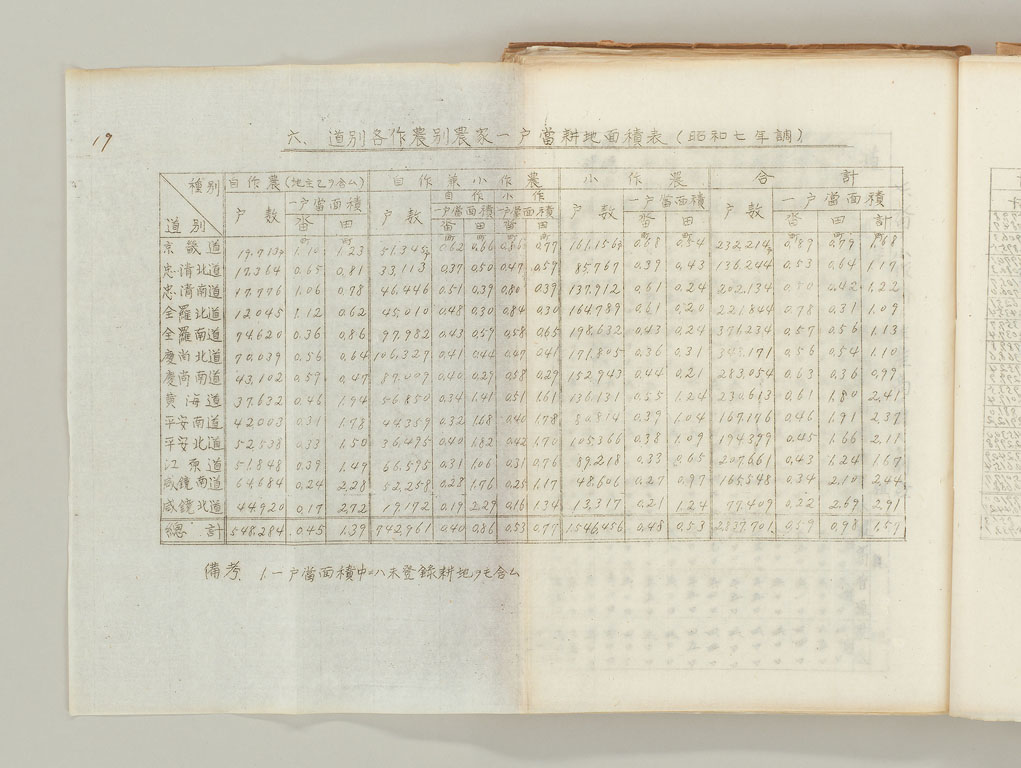 19
六、道別各作農別農家一戸當耕地面積表(昭和七年調)
種別 自作農(地主乙ヲ含ム) 自作兼小作農 小作農 合計
自作 小作
戸数 一戸當面積 戸数 一戸當面積 一戸當面積 戸数 一戸當面積 戸数 一戸當面積
道別 畓 田 畓 田 畓 田 畓 田 畓 田 計
京畿道 1.10 1.23 0.62 0.66 0.86 0.77 0.68 0.54 0.87 0.79 1.68
忠清北道 17,364 0.65 0.81 33,113 0.37 0.50 0.47 0.57 85,767 0.39 0.43 136,244 0.53 0.64 1.17
忠清南道 17,776 1.06 0.78 46,446 0.51 0.39 0.80 0.39 137,912 0.61 0.24 202,134 0.80 0.42 1.22
全羅北道 12,045 1.12 0.62 45,010 0.48 0.30 0.84 0.30 164,789 0.61 0.20 221,844 0.78 0.31 1.09
全羅南道 94,620 0.36 0.86 97,982 0.43 0.59 0.58 0.65 198,632 0.43 0.24 0.57 0.56 1.13
慶尚北道 70,039 0.56 0.64 106,327 0.41 0.44 0.47 0.41 171,805 0.36 0.31 0.56 0.54 1.10
慶尚南道 43,102 0.57 0.47 87,009 0.40 0.29 0.58 0.29 152,943 0.44 0.21 283,054 0.63 0.36 0.99
黄海道 37,632 0.46 1.94 56,850 0.34 1.41 0.51 1.61 136,131 0.55 1.24 230,613 0.61 1.80 2.41
平安南道 42,003 0.31 1.78 44,359 0.32 1.68 0.40 1.78 80,814 0.39 1.04 167,176 0.46 1.91 2.37
平安北道 52,538 0.33 1.50 36,495 0.40 1.82 0.42 1.70 105,366 0.38 1.09 194,399 0.45 1.66 2.11
江原道 51,848 0.39 1.49 66,595 0.31 1.06 0.31 0.76 89,218 0.33 0.65 207,661 0.43 1.24 1.67
咸鏡南道 64,684 0.24 2.28 52,258 0.23 1.76 0.25 1.17 48,606 0.27 0.97 165,548 0.34 2.10 2.44
咸鏡北道 44,920 0.17 2.72 19,172 0.19 2.29 0.16 1.34 13,317 0.21 1.24 77,409 0.22 2.69 2.91
總計 548,284 0.45 1.39 742,961 0.40 0.86 0.53 0.77 1,546,456 0.48 0.53 2,837,701 0.59 0.98 1.57
備考 1.一戸當面積中ニハ未登録耕地ヲモ含ム